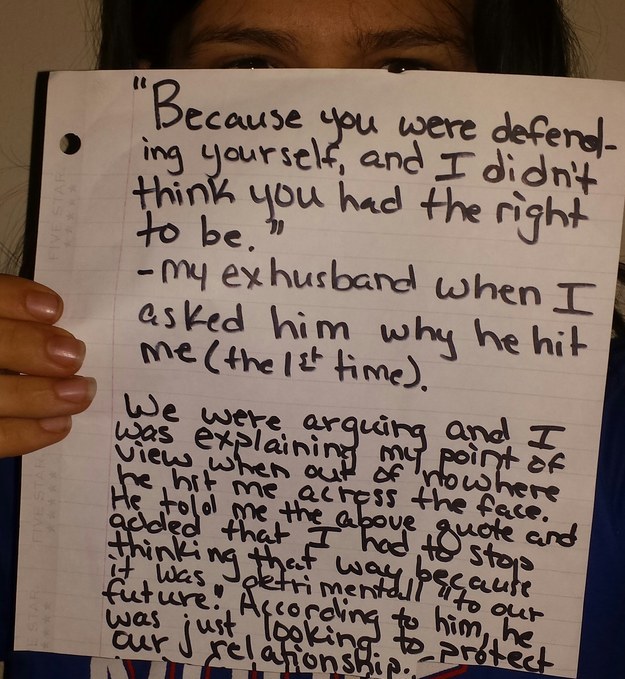 "Because you were defend-
ing yourself, and I didn't
think you had the right
to be."
-my exhusband when I
asked him why he hit
me (the 1st time).
We were arguing and I
was explaining my point of
view when out of nowhere
he hit me across the face.
He told me the above quote and
added that I had to stop
thinking that way because
it was "detrimentall "to our
future." According to him, he
was just looking to protect
our relationship.
FIVE STAR
FIVE STAR
STAR